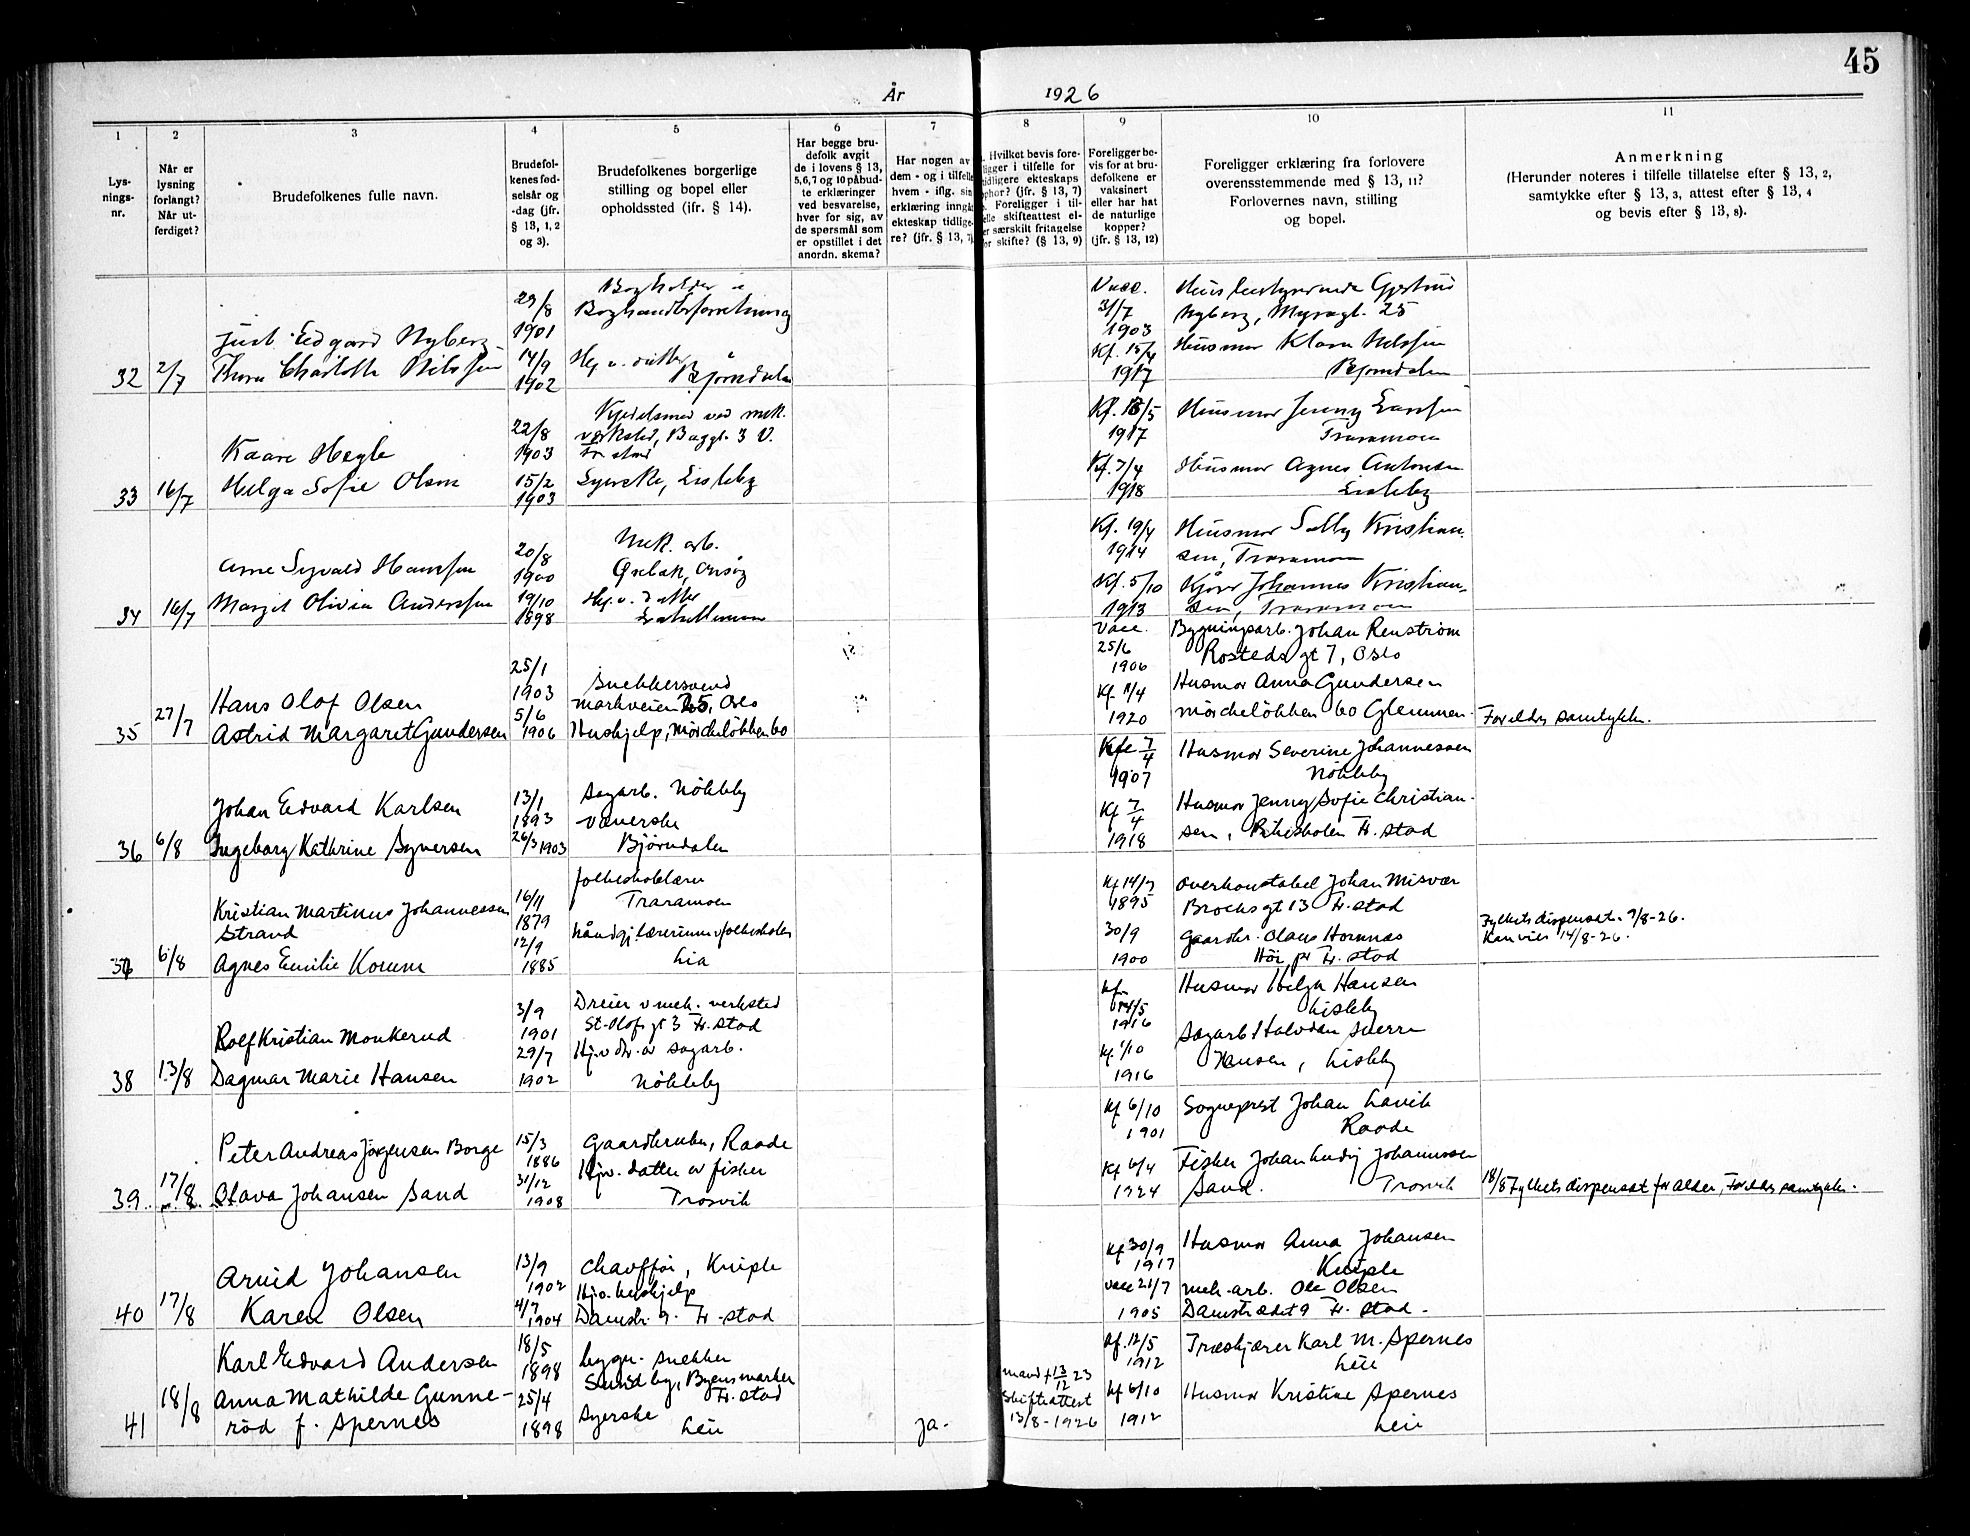 45
År 1926
1 2 3 4 5 6 7 8 9 10 11
Lys-
nings-
nr.
Når er
lysning
forlangt?
Når ut-
ferdiget?
Brudefolkenes fulle navn.
Brudefol-
kenes fød-
selsår og
-dag (jfr.
§ 13, 1, 2
og 3).
Brudefolkenes borgerlige
stilling og bopel eller
opholdssted (ifr. § 14).
Har begge bru-
defolk avgit
de i lovens § 13,
5, 6, 7 og 10 påbud-
te erklæringer
ved besvarelse,
hver for sig, av
de spørsmål som
er opstillet i det
anordn. skema?
Har nogen av
dem - og i tilfelle
hvem - iflg. sin
erklæring inngåt
ekteskap tidlige-
re? (jfr. § 13, 7)
Hvilket bevis fore-
ligger i tilfelle for
tidligere ekteskaps
ophør? (jfr. § 13, 7)
Foreligger i til-
felle skifteattest el-
er særskilt fritagelse
for skifte? (§ 13, 9)
Foreligger be-
vis for at bru-
defolkene er
vaksinert
eller har hat
de naturlige
kopper?
(jfr. § 13, 12)
Foreligger erklæring fra forlovere
overensstemmende med § 13, 11?
Forlovernes navn, stilling
og bopel.
Anmerkning
(Herunder noteres i tilfelle tillatelse efter § 13, 2,
samtykke efter § 13, 3, attest efter § 13, 4
og bevis efter § 13, 8).
32 2/7
Just Edgard Nyberg
Thora Charlotte Nilssen
29/8
1901
14/9
1902
Bogholder i
Boghandlerforretning
Hj. v. datter
Bjørndalen
Vacc.
31/7
1903
Kf. 15/4
1917
Husbestyrerinde Gjertrud
Nyberg, Myragt. 25
Husmor Klara Nilssen
Bjørndalen
33 16/7
Kaare Hegle
Helga Sofie Olsen
22/8
1903
15/2
1903
Kjedelsmed ved mek.
verksted, Byggt. 3 V.
Fr.stad
Syerske, Lisleby
Kf. 13/5
1917
Kf. 7/4
1918
Husmor Jenny Larssen
Traramoen
Husmor Agnes Antonsen
Lisleby
34 16/7
Arne Sigvald Hanssen
Margit Olivia Anderssen
20/8
1900
19/10
1898
Mek. arb.
Øxbak, Onsøy
Hj. v. datter
Kf. 19/4
1914
Kf. 5/10
1913
Husmor Solly Kristian-
sen, Traramoen
Kjører Johannes Kristian-
sen, Traramoen
35 27/7
Hans Olof Olsen
Astrid Margaret Gundersen
25/1
1903
5/6
1906
Snekkersvend
Markveien 25, Oslo
Hushjelp, Mörcheløkken 60
Vacc.
25/6
1906
Kf. 11/4
1920
Bygningsarb. Johan Renstrøm
Rosteds gt 7, Oslo
Husmor Anna Gundersen
Mörcheløkken 60 Glemmen.
Foreldres samtykke.
36 6/8
Johan Edvard Karlsen
Ingeborg Kathrine Syversen
13/1
1893
26/3 1903
Sagarb. Nökleby
Væverske
Bjørndalen
Kf 7/4
1907
Kf 7/4
1918
Husmor Severine Johannessen
Nökleby
Husmor Jenny Sofie Christian-
sen, Fr.stad
6/8
Kristian Martinus Johannessen
Strand
Agnes Emilie Korum
16/11
1879
12/9
1885
folkeskolelærer
Traramoen
håndgj.lærerinne v folkeskolen
Lia
Kf 14/7
1895
30/9
1900
Overkonstabel Johan Misvær
Brochs gt 13 Fr.stad
Gaardbr. Olaus Hornnæs
pr Fr.stad
Fylkets dispensat. 9/8-26.
Kan vies 14/8-26.
38 13/8
Rolf Kristian Monkerud
Dagmar Marie Hansen
3/9
1901
29/7
1902
Dreier v mek. verksted
St. Olafs gt 3 Fr.stad
Hj. v dtr. av sagarb.
Nökleby
Kf.
14/5
1916
Kf. 1/10
1916
Husmor Helga Hansen
Lisleby
Sagarb Halvdan Sverre
Hansen, Lisleby
39. 17/8.
Peter Andreas Jörgensen Borge
Olava Johansen Sand
15/3
1886
31/12
1908
Gaardbruker, Raade
Hj. v. datter av fisker
Trosvik
Kf 6/10
1901
Kf 6/4
1924
Sogneprest Johan Lavik
Raade
Fisker Johan Ludvig Johannessen
Sand. Trosvik
18/8 Fylkets dispensat for alder, Foreldres samtykke.
40 17/8
Arvid Johansen
Karen Olsen
13/9
1902
4/7
1904
Chauffør, Kniple
Hj. v. hushjelp
Damstr. 9. Fr.stad
Kf 30/9
1917
Vacc 21/7
1905
Husmor Anna Johansen
Kniple
Mek. arb. Ole Olsen
Damstrædet 9 Fr. stad.
41 18/8
Karl Edvard Andersen
Anna Mathilde Gunne-
röd f. Spernes
18/5
1898
25/4
1898
bygn. snekker
Sundby, Byens marker
Fr. stad
Syerske
Leie
ja.
mand † 13/12 23
Skifteattest
13/8 - 1926
Kf. 12/5
1912
Kf 6/10
1912
Træskjærer Karl M. Spernes
Leie
Husmor Kristine Spernes
Leie